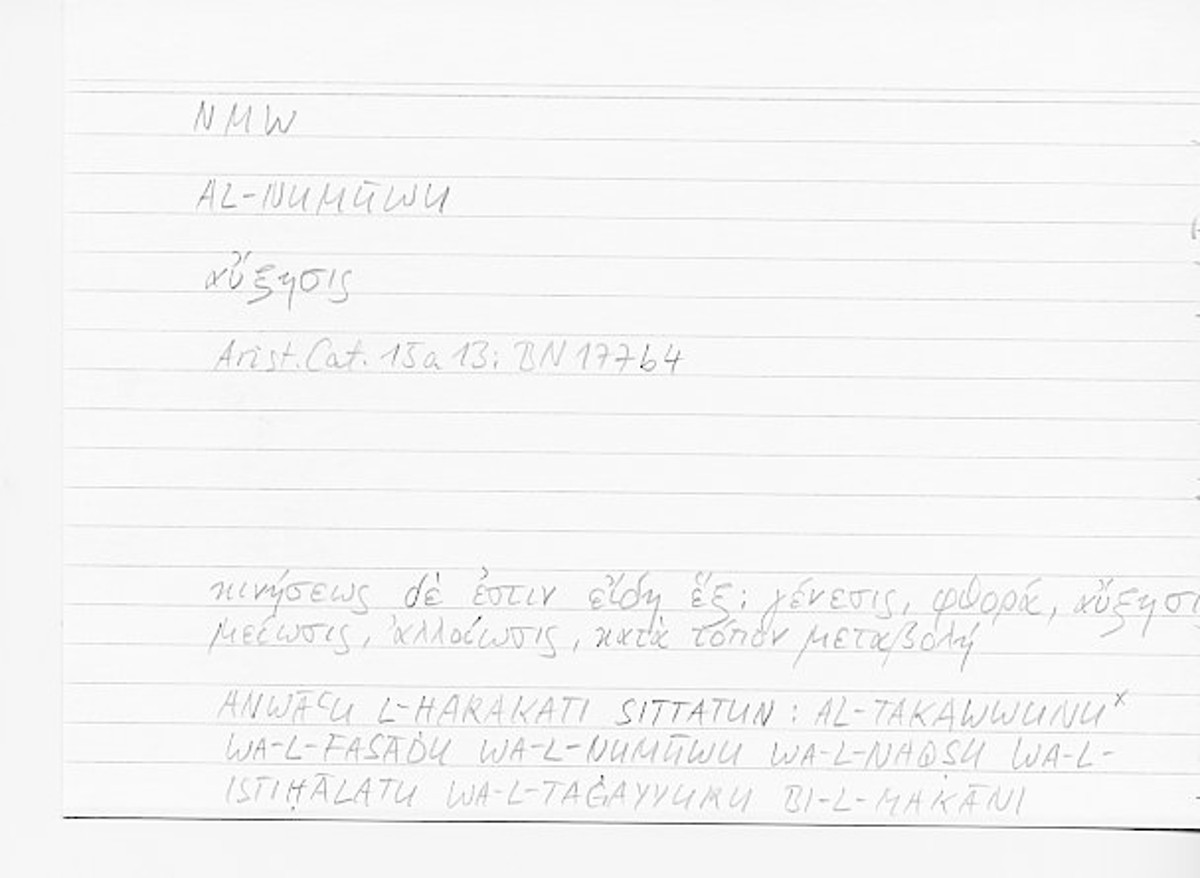 NMW
AL-NUMŪWU
αὔξησις
Arist. Cat. 15a 13; BN 177b4
κινήσεως δέ ἐστιν εἴδη ἕξ; γένεσις, φθορά, αὔξησι
μείωσις, ἀλλοίωσις, κατὰ τόπον μεταβολή
ANWĀʿU L-ḤARAKATI SITTATUN : AL-TAKAWWUNUˣ
WA-L-FASĀDU WA-L-NUMŪWU WA-L-NAQṢU WA-L-
ISTIḤĀLATU WA-L-TAĠAYYURU BI-L-MAKĀNI